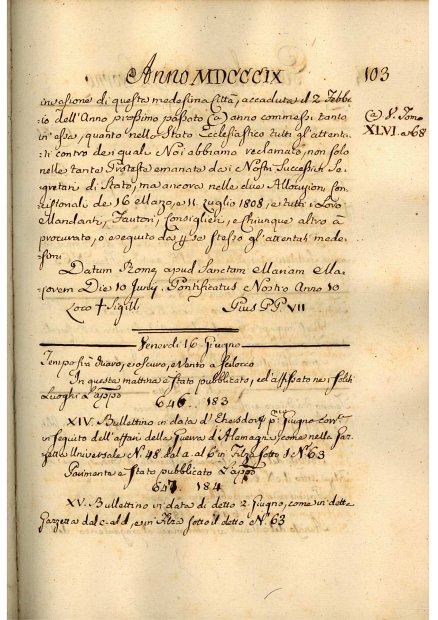 Anno MDCCCIX
103
invasione di questa medesima Città, accaduta il 2 Febbr
io dell'Anno prossimo passato anno commessi tanto
in essa, quanto nello Stato Ecclesiastico tutti gl'attenta
ti contro de quali Noi abbiamo reclamato, non solo
nelle tante Proteste emanate da i Nostri Successivi Se
gretari di Stato, ma ancora nelle due Allocuzion Con
cistoriali de 16 Marzo, e 11 Luglio 1808, e tutti i Loro
Mandanti, Fautori, Consiglieri, e Chiunque altro à
procurato, o eseguito da se stesso gl'attentati mede
simi
Datum Rome apud Sanctam Mariam Ma
jorem Die 10 Junij. Pontificatus Nostro Anno 10
Loco + Sigilli
Pius PP. VII
XLVI. a 68
Venerdi 16 Giugno
Tempo frà chiaro, e oscuro, e Vento a Scilocco
In questa mattina è Stato pubblicato, ed affissato ne soliti
Luoghi L'appo
646.. 183
XIV. Bullettino in data d'Ebersdorf Giugno
in seguito dell'affari della Guerra d'Alemagna, come nella Gaz
zetta Universale N. 48 dal a al b in Filza sotto N. 63
Parimente è Stato pubblicato L'appo
647.. 184
XV. Bullettino in data di detto 2 Giugno, come in detta
Gazzetta dal c al d, e in Filza sotto il detto N. 63